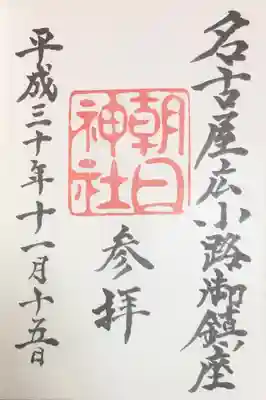 名古屋広小路御鎮座
朝日
神社
参拝
平成三十年十一月十五日